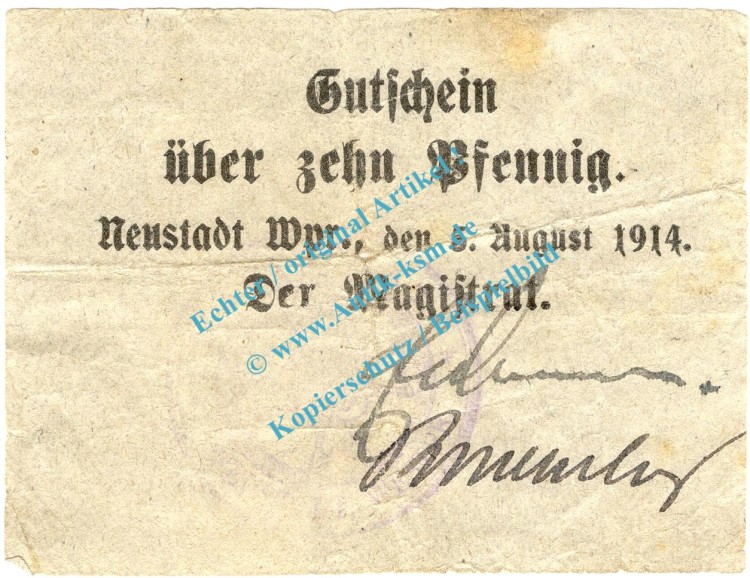 Gutschein
über zehn Pfennig.
Neustadt Wpr., den 8. August 1914.
Der Magistrat.
Echter / original Artikel !
© www.Antik-ksm.de
Kopierschutz / Beispielbild